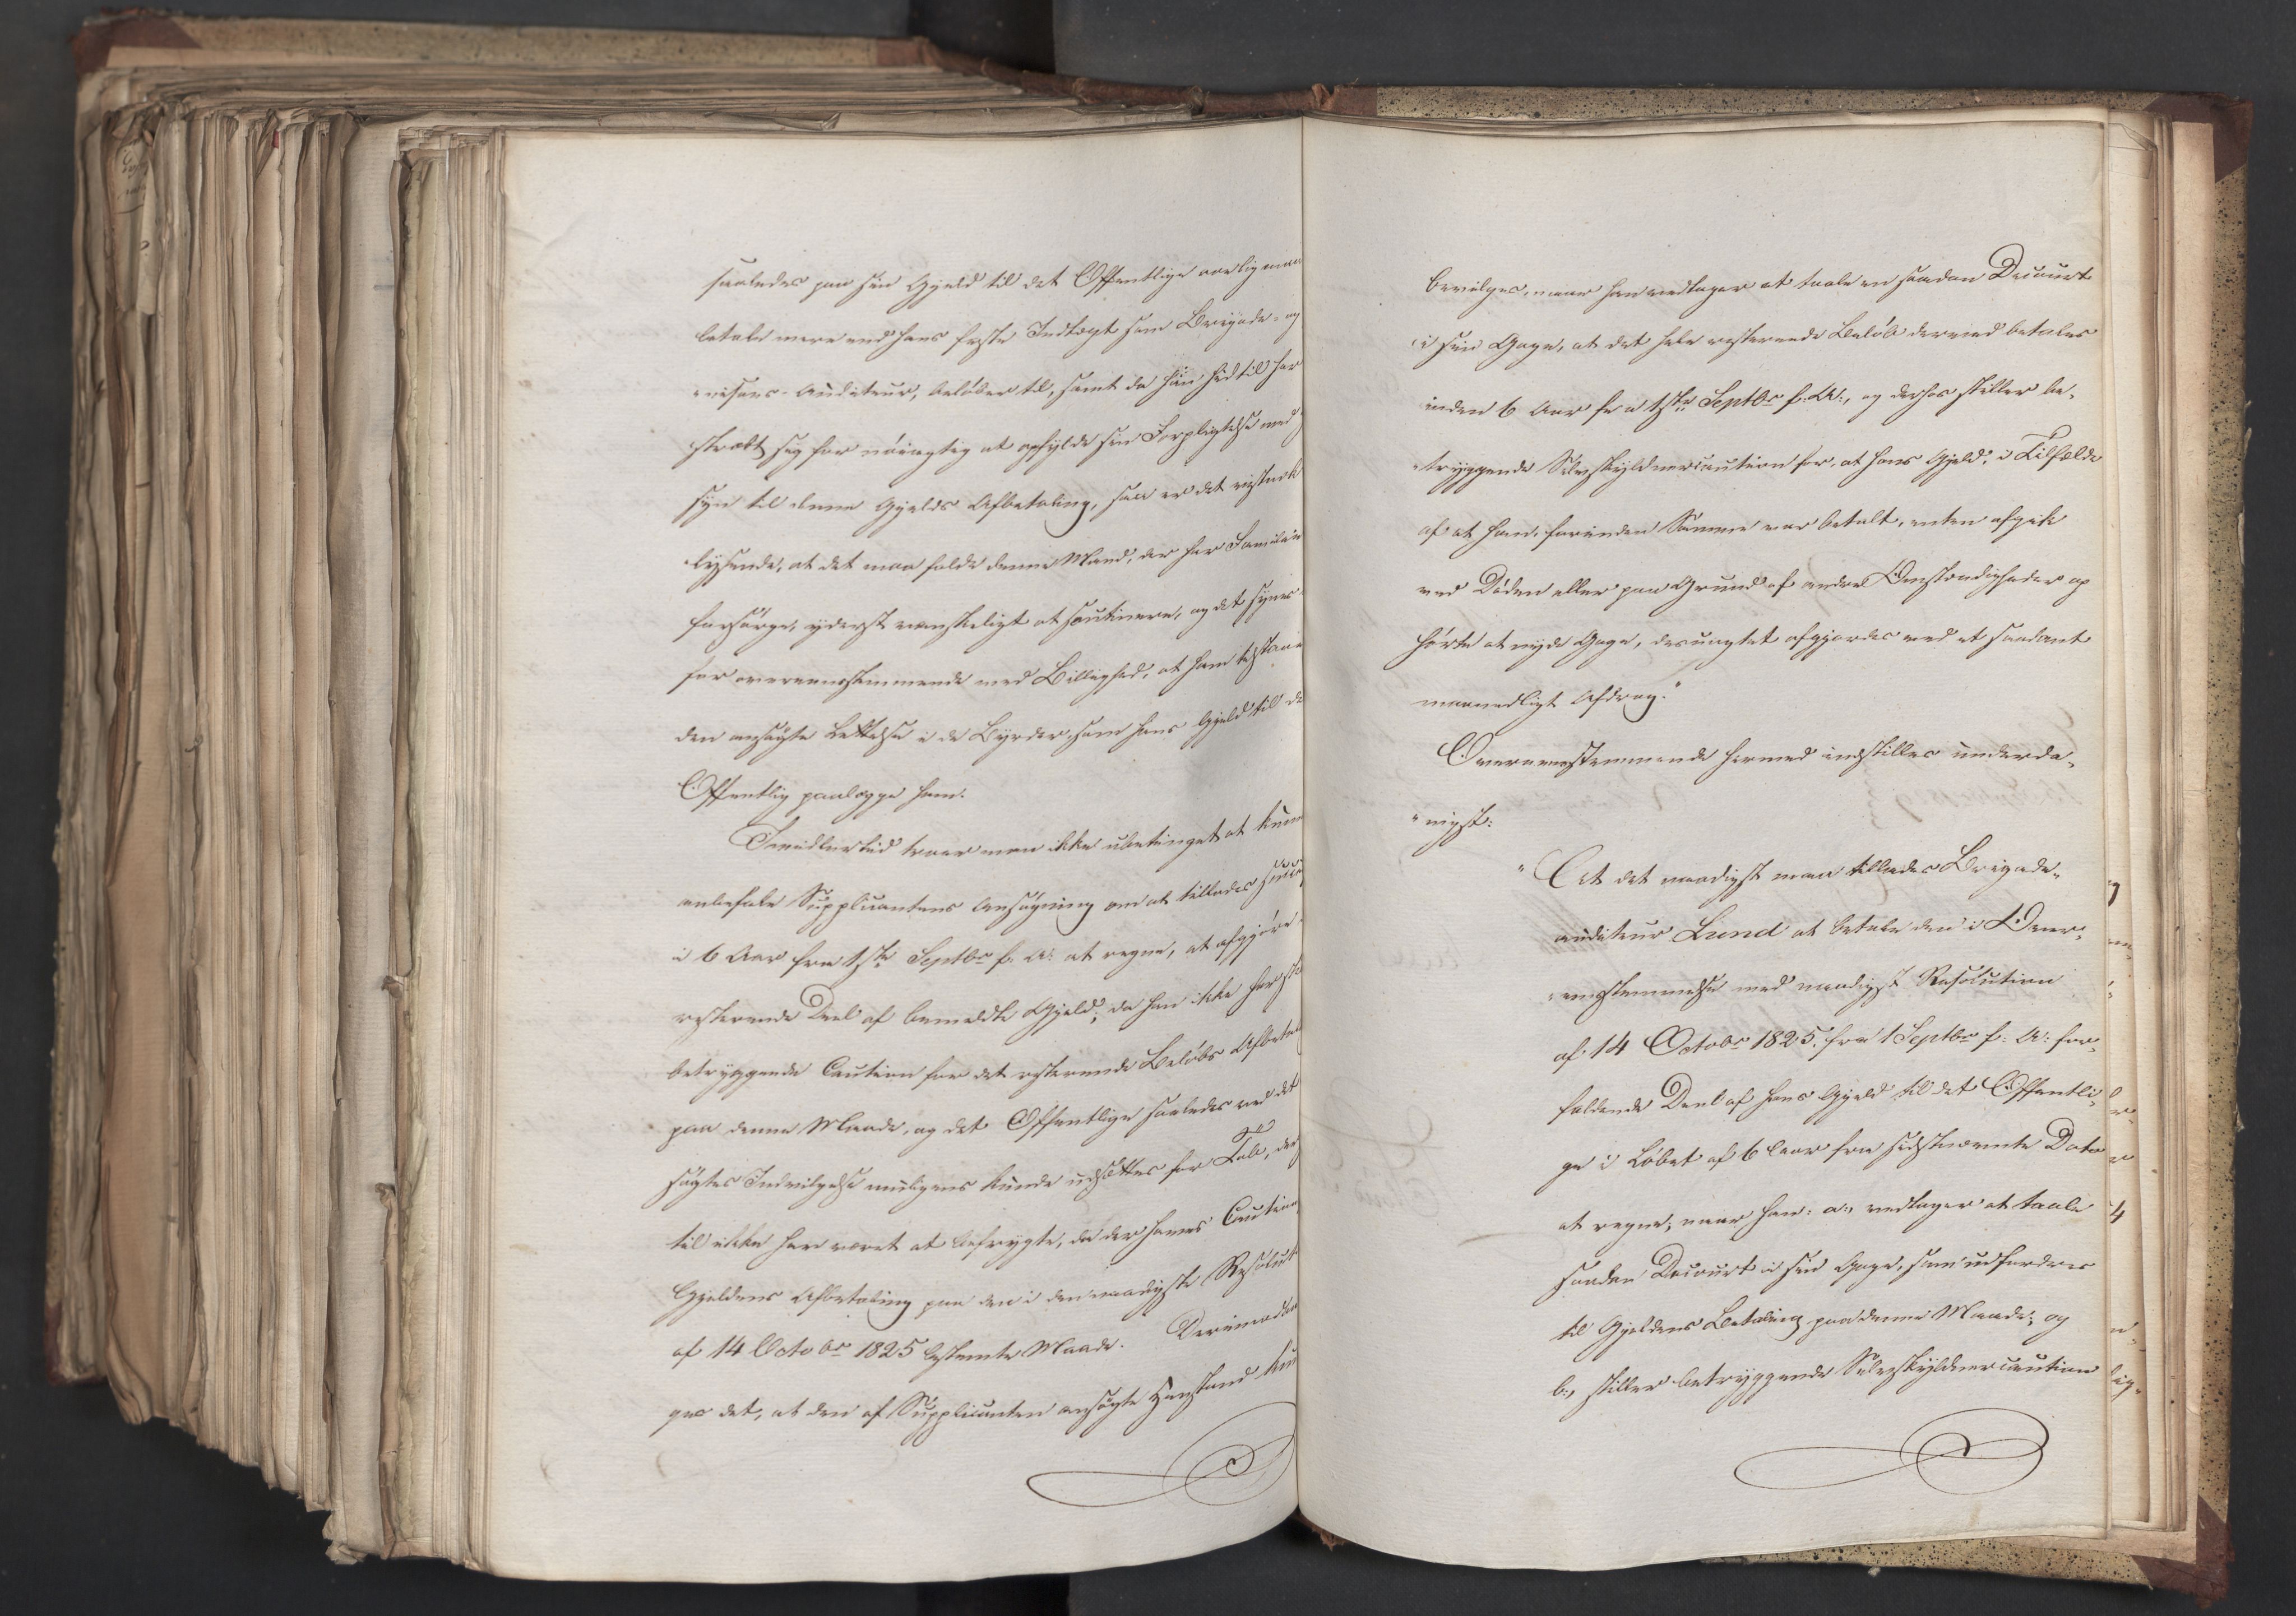 saaledes paa sin Gjeld til det Offentlige aarlig maa
betale mere end hans faste Indtægt som Brigade- og
"nisons-Auditeur, beløber til, samt da han hidtil har
stræbt sig for nøiagtig at opfylde sin Forpligtelse med
syn til denne Gjelds Afbetaling, saa er det
"lysende, at det maa falde denne Mand, der har Familie
forsørge, yderst vanskeligt at soutinere, og det synes
før overeensstemmende med Billighed, at ham tilstaaes
den ansøgte Lettelse i de Byrder, som hans Gjeld til de
Offentlig paalægge ham.
Imidlertid troer man ikke ubetinget at kunne
anbefale Supplicantens Ansøgning om at tillades
i 6 Aar fra 1ste Septbr f. A. at regne, at afgjøre
resterende Deel af bemeldte Gjeld, da han ikke har
betryggende Caution for det resterende Beløbs Afbetal
paa denne Maade, og det Offentlige saaledes ved det
søgtes Indvilgelse muligens kunde udsættes for Tab, der
til ikke har været at befrygte, da der haves Caution
Gjeldens Afbetaling paa den i den naadigste Resoluti
af 14 Octobr 1825 bestemte Maade. Derimod
ges det, at den af Supplicanten ansøgte Henstand kun
bevilges, naar han vedtager at taale en saadan Decourt
i sin Gage, at det hele resterende Beløb dermed betales
inden 6 Aar fra 1ste Septbr f. A., og derhos stiller be-
"tryggende Selvskyldnercaution for, at hans Gjeld, i Tilfælde
af at han, forinden Samme var betalt, enten afgik
ved Døden eller paa Grund af andre Omstændigheder op
hørte at nyde Gage, desuagtet afgjordes med et saadant
maanedligt Afdrag."
Overeensstemmende hermed indstilles underda-
"nigst:
"At det naadigst maa tillades Brigade-
auditeur Lund at betale den i Over-
"eensstemmelse med naadigst Resolution
af 14 Octobr 1825 fra 1 Septbr f: A: for-
faldende Deel af hans Gjeld til det Offentli-
ge i Løbet af 6 Aar fra sidstnævnte Dato
at regne, naar han: a., vedtager at taale
saadan Decourt i sin Gage, som udfordres
til Gjeldens Betaling paa denne Maade; og
b., stiller betryggende Selvskyldnercaution